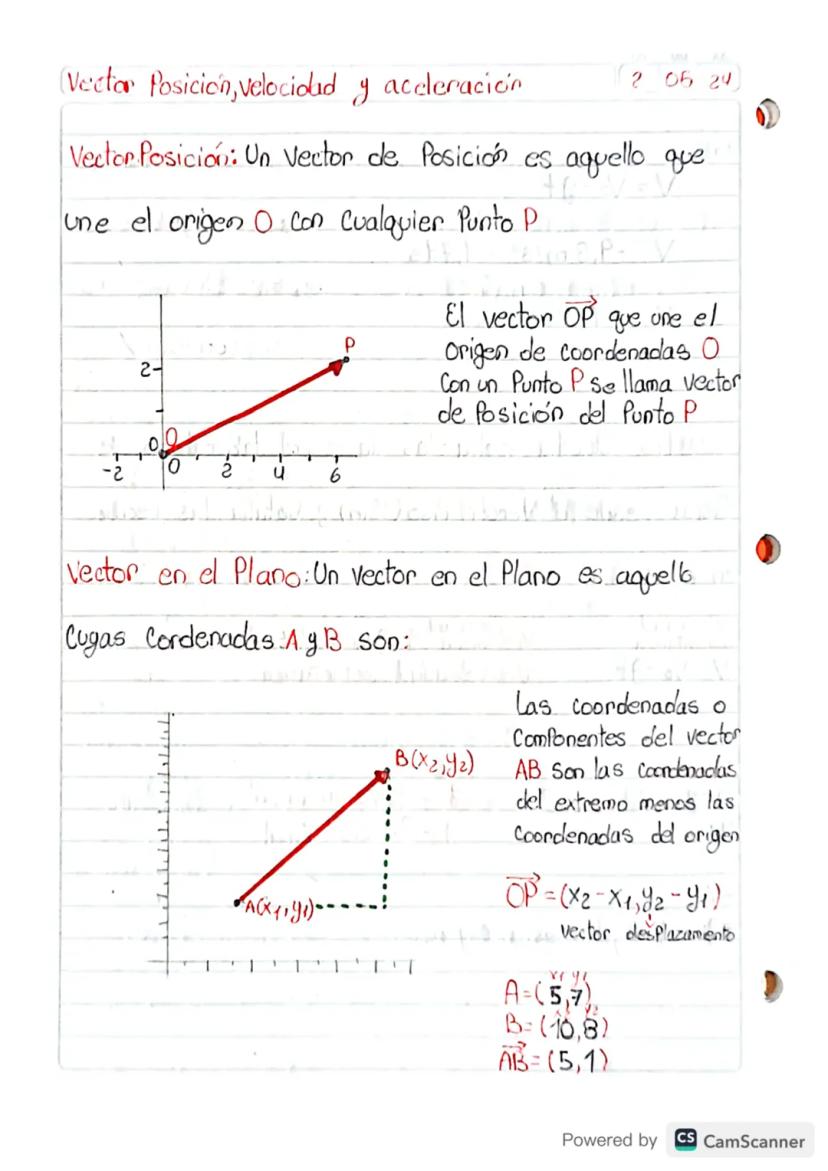 Vector Posición, velocidad y aceleración
2 05 24
Vector Posición: Un vector de Posición es aquello que
une el origen O con cualquier Punto P
El vector OP que une el
origen de coordenadas O
Con un Punto P se llama vector
de Posición del Punto P
P
2
0
O
-2 0 2 4 6
Vector en el Plano: Un vector en el Plano es aquello
Cugas Cordenadas A y B son:
Las coordenadas o
Componentes del vector
AB son las coordenadas
del extremo menos las
Coordenadas del origen
B(x2,y2)
A(x1,y1)
OP=(x2-x1,y2-y1)
vector desplazamiento
x1 y1
A=(5,7)
x2 y2
B=(10,8)
AB=(5,1)
Powered by CS CamScanner